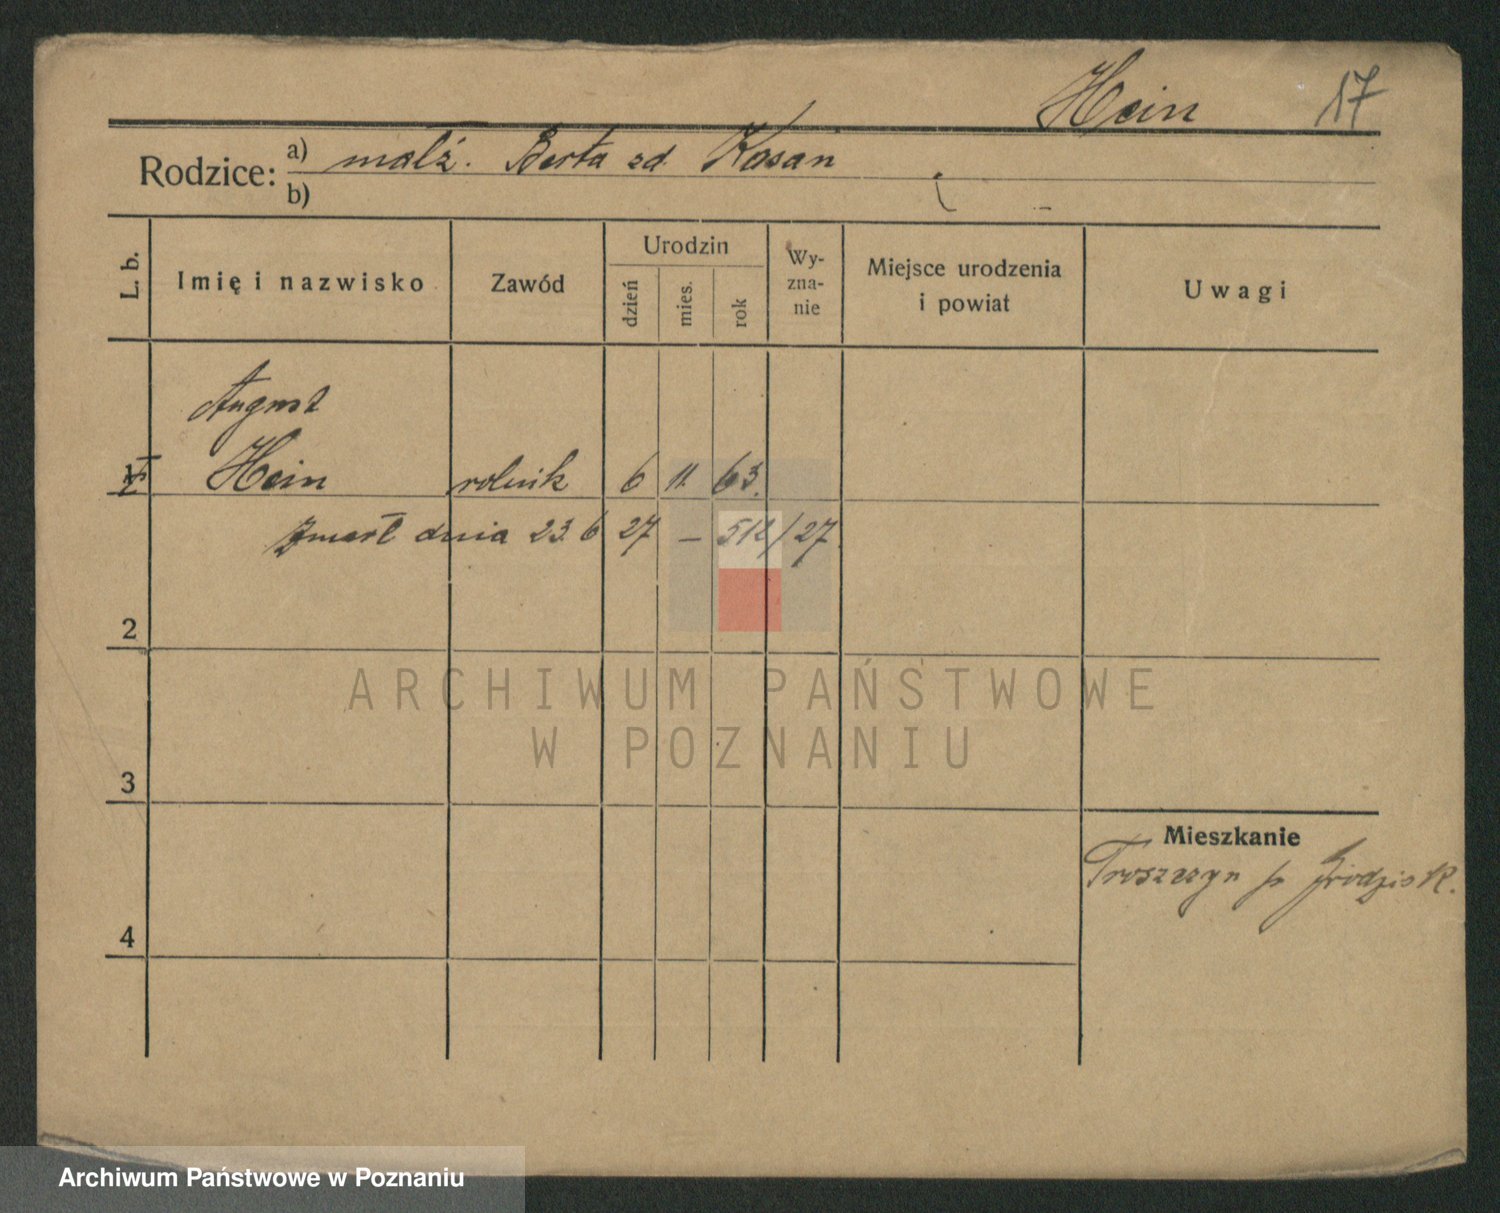 Hein 17
Rodzice: a) małż. Berta zd Kosan
b)
L. b.
Imię i nazwisko
Zawód
Urodzin
dzień
mies.
rok
Wy-
zna-
nie
Miejsce urodzenia
i powiat
Uwagi
August
1 Hein rolnik 6 11. 63.
Zmarł dnia 23. 6 27 – 512/27.
2
3
4
Mieszkanie
Troszczyn p. Grodzisk.
ARCHIWUM PAŃSTWOWE
W POZNANIU
Archiwum Państwowe w Poznaniu